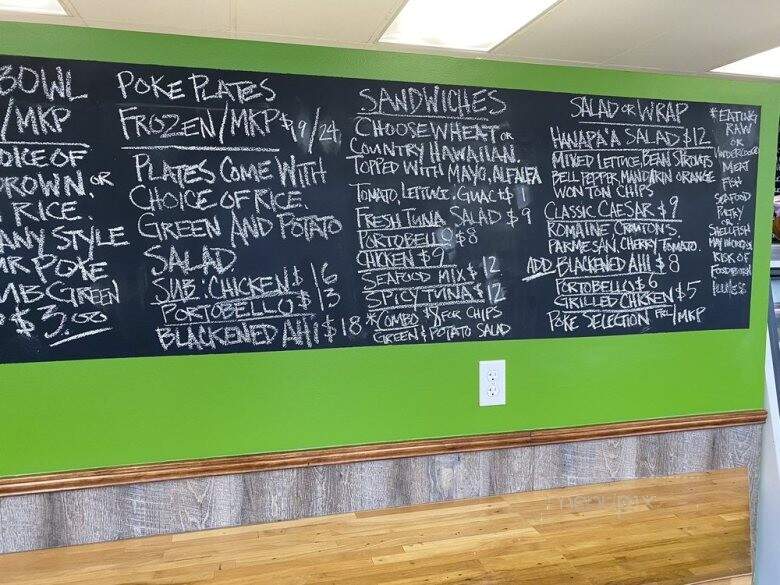 BOWL
/MKP
OICE OF
ROWN OR
RICE.
ANY STYLE
POKE
GREEN
$3.00
POKE PLATES
FROZEN/MKP $19/24
PLATES COME WITH
CHOICE OF RICE.
GREEN AND POTATO
SALAD
SUB: CHICKEN $16
PORTOBELLO $13
BLACKENED AHI $18
SANDWICHES
CHOOSE WHEAT OR
COUNTRY HAWAIIAN.
TOPPED WITH MAYO, ALFALFA
TOMATO, LETTUCE. GUAC +$1
FRESH TUNA SALAD $9
PORTOBELLO $8
CHICKEN $9
SEAFOOD MIX $12
SPICY TUNA $12
*COMBO $ FOR CHIPS
GREEN & POTATO SALAD
SALAD OR WRAP
HANAPA'A SALAD $12
MIXED LETTUCE, BEAN SPROUTS
BELL PEPPER, MANDARIN ORANGE
WON TON CHIPS
CLASSIC CAESAR $9
ROMAINE CROUTONS.
PARMESAN, CHERRY TOMATO.
ADD BLACKENED AHI $8
PORTOBELLO $6
GRILLED CHICKEN $5
POKE SELECTION FRZ/MKP
*EATING
RAW
OR
UNDERCOOKED
MEAT
FISH
SEAFOOD
SHELLFISH
RISK OF
menupix